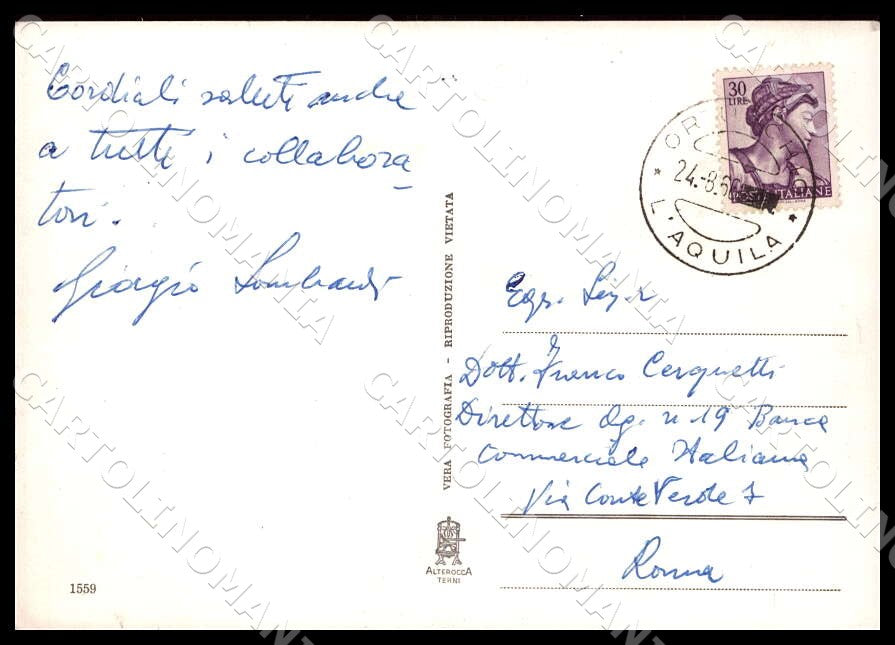 Cordiali saluti anche
a tutti i collabora
tori.
Giorgio Lombardi
VERA FOTOGRAFIA - RIPRODUZIONE VIETATA
1559
ALTEROCCA
TERNI
30
LIRE
POSTE ITALIANE
24.-8.6
L'AQUILA
Egr. Sig.r
Dott. Franco Cerquetti
Direttore Ag. n 19 Banca
Commerciale Italiana
Via Conte Verde 7
Roma
CARTOLINOMANIA